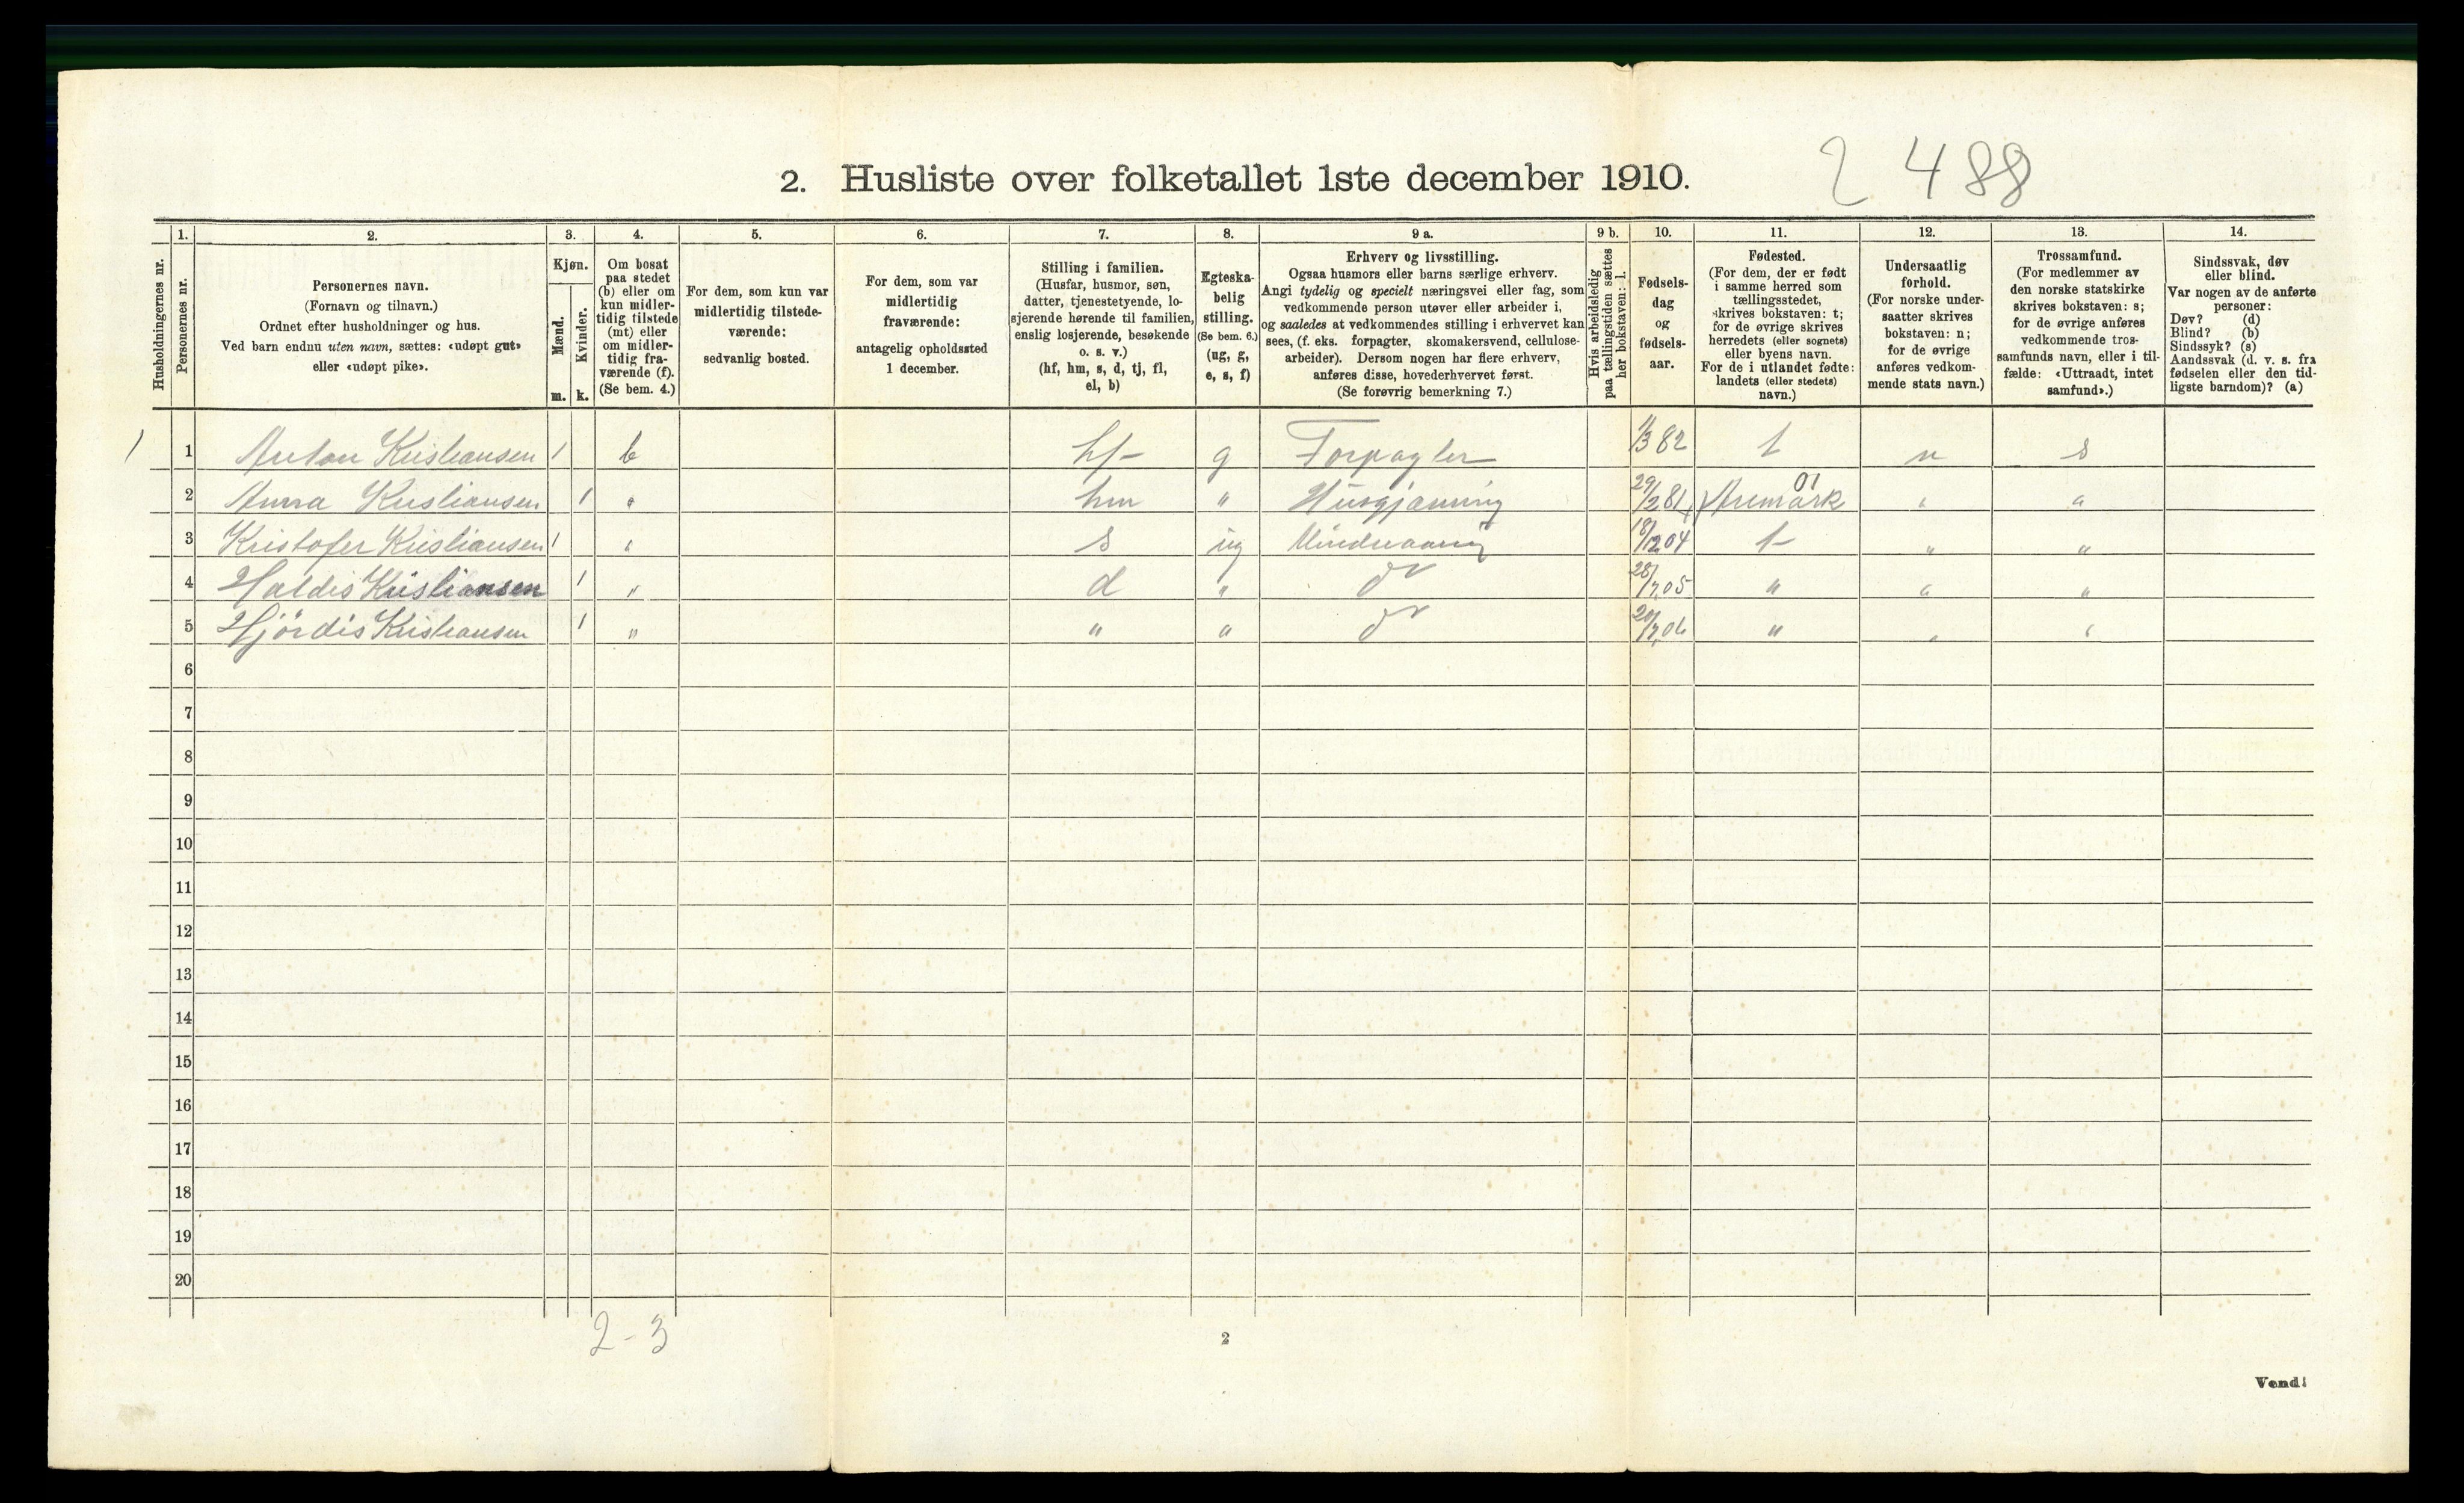 2 488
2. Husliste over folketallet 1ste december 1910.
1. 2. 3. 4. 5. 6. 7. 8. 9 a. 9 b. 10. 11. 12. 13. 14.
Husholdningernes nr.
Personernes nr.
Personernes navn.
(Fornavn og tilnavn.)
Ordnet efter husholdninger og hus.
Ved barn endnu uten navn, sættes: «udøpt gut»
eller «udøpt pike».
Kjøn.
Mænd.
Kvinder.
m. k.
Om bosat
paa stedet
(b) eller om
kun midler-
tidig tilstede
(mt) eller
om midler-
tidig fra-
værende (f).
(Se bem. 4.)
For dem, som kun var
midlertidig tilstede-
værende:
sedvanlig bosted.
For dem, som var
midlertidig
fraværende:
antagelig opholdssted
1 december.
Stilling i familien.
(Husfar, husmor, søn,
datter, tjenestetyende, lo-
sjerende hørende til familien,
enslig losjerende, besøkende
o. s. v.)
(hf, hm, s, d, tj, fl,
el, b)
Egteska-
belig
stilling.
(Se bem. 6.)
(ug, g,
e, s, f)
Erhverv og livsstilling.
Ogsaa husmors eller barns særlige erhverv.
Angi tydelig og specielt næringsvei eller fag, som
vedkommende person utøver eller arbeider i,
og saaledes at vedkommendes stilling i erhvervet kan
sees, (f. eks. forpagter, skomakersvend, cellulose-
arbeider). Dersom nogen har flere erhverv,
anføres disse, hovederhvervet først.
(Se forøvrig bemerkning 7.)
Hvis arbeidsledig
paa tællingstiden sættes
her bokstaven: l.
Fødsels-
dag
og
fødsels-
aar.
Fødested.
(For dem, der er født
i samme herred som
tællingsstedet,
skrives bokstaven: t;
for de øvrige skrives
herredets (eller sognets)
eller byens navn.
For de i utlandet fødte:
landets (eller stedets)
navn.)
Undersaatlig
forhold.
(For norske under-
saatter skrives
bokstaven: n;
for de øvrige
anføres vedkom-
mende stats navn.)
Trossamfund.
(For medlemmer av
den norske statskirke
skrives bokstaven: s;
for de øvrige anføres
vedkommende tros-
samfunds navn, eller i til-
fælde: «Uttraadt, intet
samfund».)
Sindssvak, døv
eller blind.
Var nogen av de anførte
personer:
Døv? (d)
Blind? (b)
Sindssyk? (s)
Aandssvak (d. v. s. fra
fødselen eller den tid-
ligste barndom)? (a)
1 1 Anton Kristiansen 1 b hf g Forpagter 1/3 82 t n s
2 Anna Kristiansen 1 " hm " Husgjærning 29/12 81 Aremark 01 " "
3 Kristofer Kristiansen 1 " s ug Mindreaarig 18/12 04 t " "
4 Haldis Kristiansen 1 " d " do 28/7 05 " " "
5 Hjördis Kristiansen 1 " " " do 20/7 06 " " "
6
7
8
9
10
11
12
13
14
15
16
17
18
19
20
2-3
2
Vend!